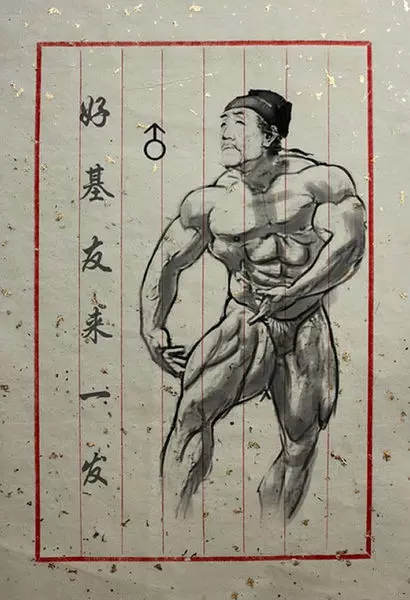 好基友来一发